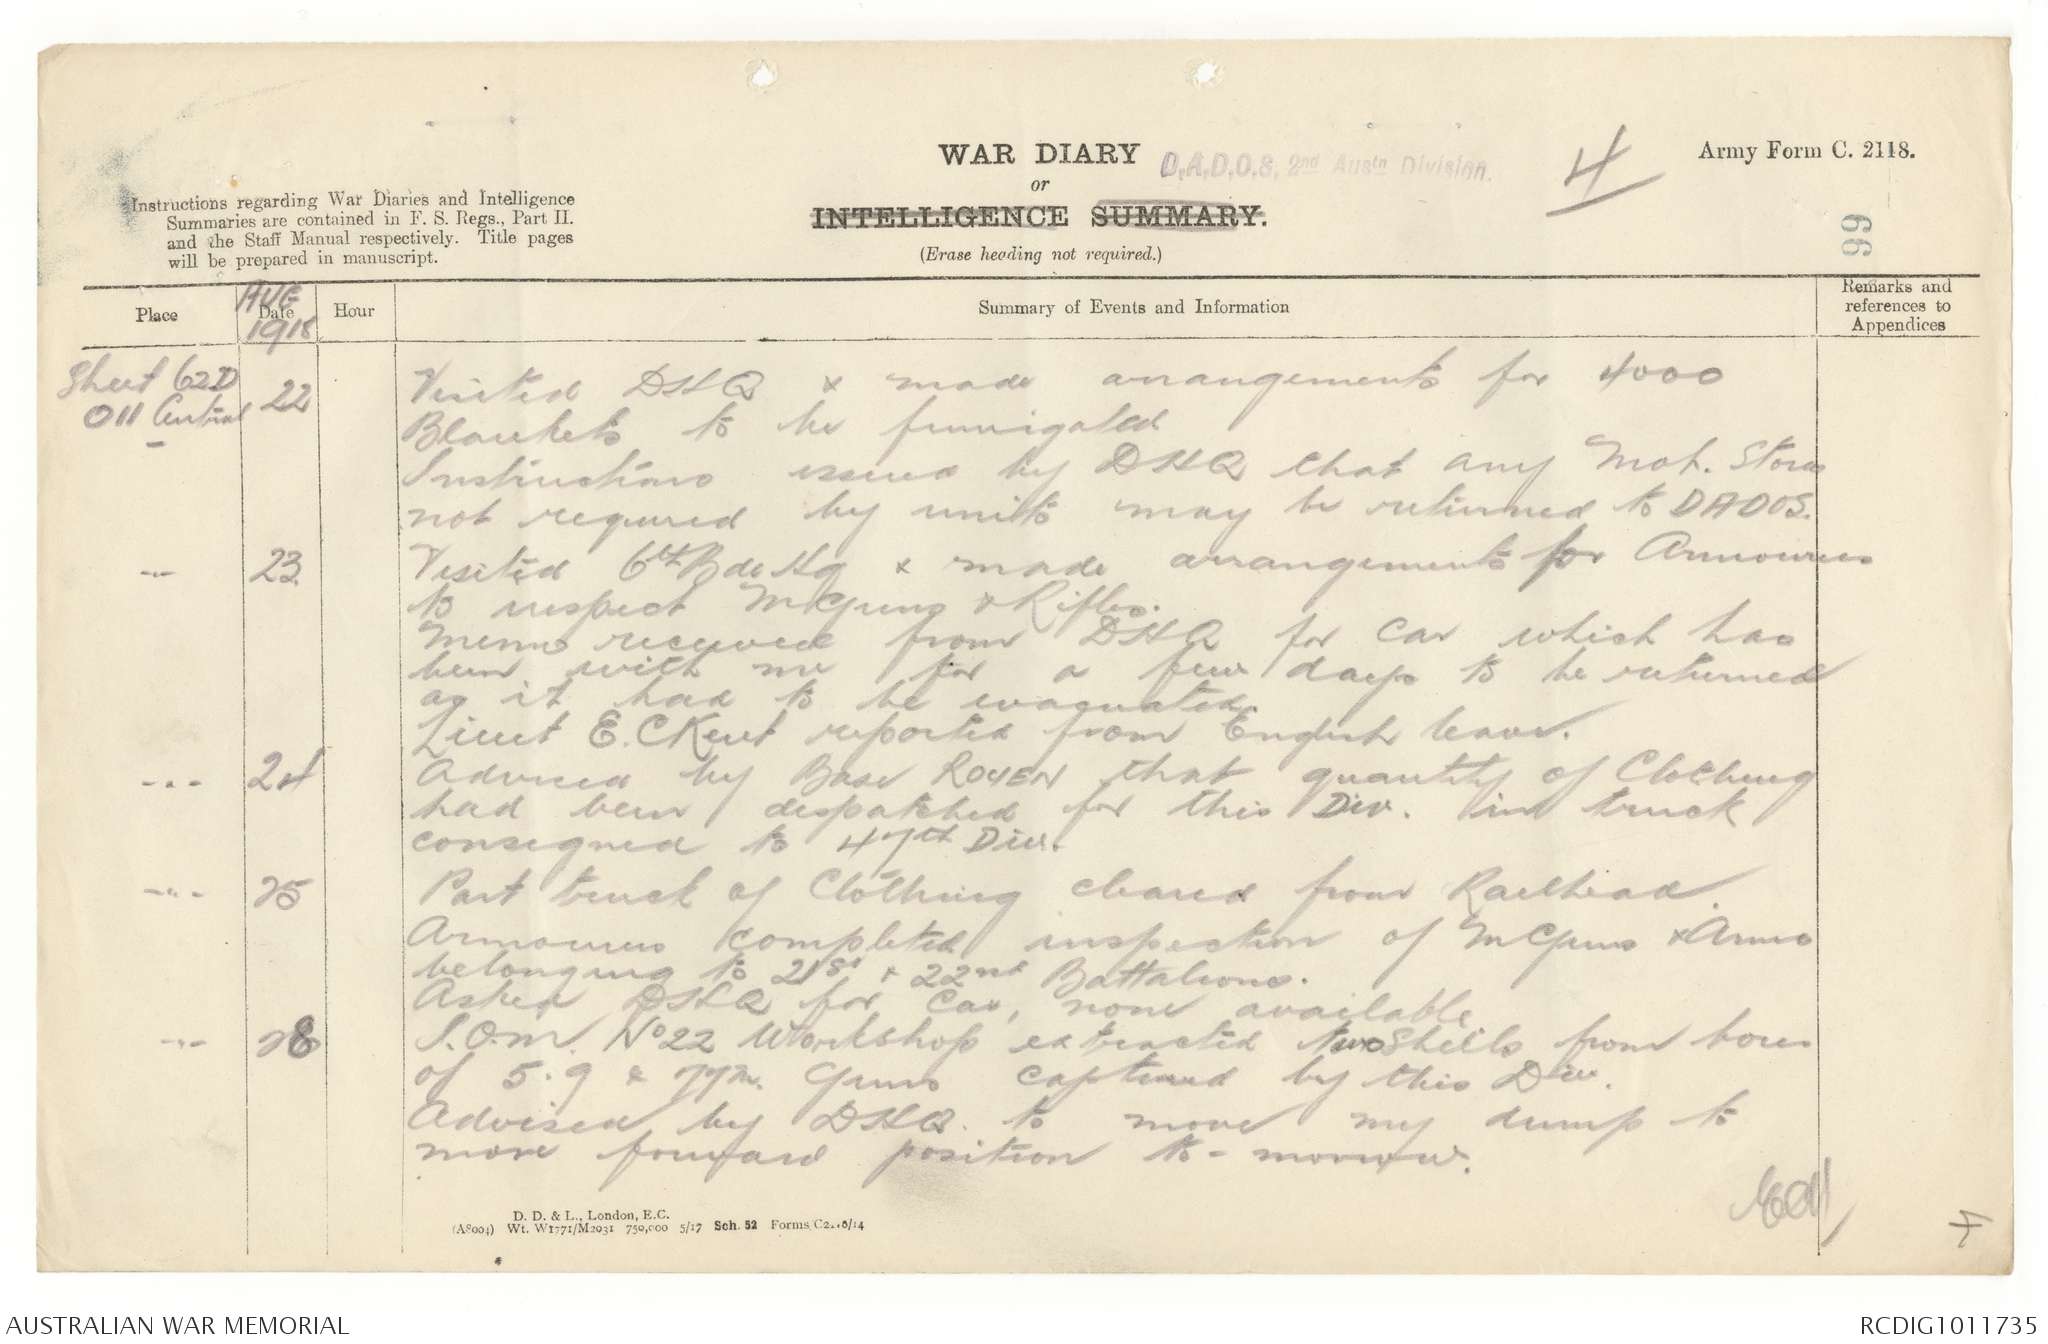 WAR DIARY
or
INTELLIGENCE SUMMARY.
(Erase heading not required.)
D.A.D.O.S. 2nd Austn Division.
4
Army Form C. 2118.
99
Instructions regarding War Diaries and Intelligence
Summaries are contained in F. S. Regs., Part II.
and the Staff Manual respectively. Title pages
will be prepared in manuscript.
Place
AUG
Date
1918
Hour
Summary of Events and Information
Remarks and
references to
Appendices
Sheet 62D
O11 Central
22
Visited DHQ & made arrangements for 4000
Blankets to be fumigated
Instructions issued by DHQ that any Mob. Stores
not required by units may be returned to DADOS.
-"-
23
Visited 6th Bde Hq & made arrangements for Armourers
to inspect McGuns & Rifles.
Memo received from DHQ for car which has
been with me for a few days to be returned
as it had to be evacuated.
Lieut E.C Kent reported from English leave.
-"-
24
Advised by Base ROUEN that quantity of Clothing
had been despatched for this Div. in truck
consigned to 47th Div.
-"-
25
Part truck of Clothing cleared from Railhead.
Armourers completed inspection of McGuns & Arms
belonging to 21st & 22nd Battalions.
Asked DHQ for Car, none available
-"-
26
I.O.M. No 22 Workshop extracted two shells from bores
of 5.9 & 77m. Guns captured by this Div.
Advised by DHQ. to move my dump to
more forward position to-morrow.
D. D. & L., London, E.C.
(A8004) Wt. W1771/M2031 750,000 5/17 Sch. 52 Forms/C2118/14
AUSTRALIAN WAR MEMORIAL
RCDIG1011735